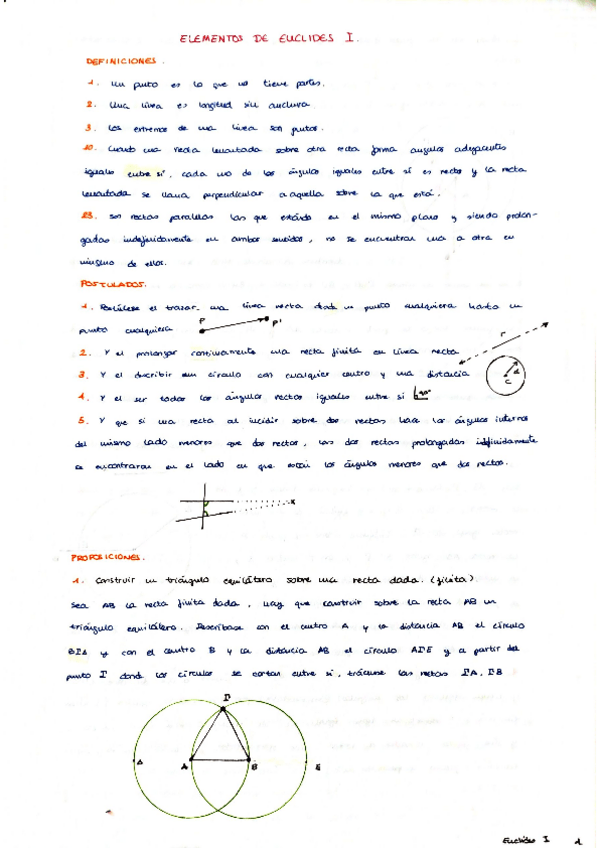 ELEMENTOS DE EUCLIDES I.
DEFINICIONES.
1. Un punto es lo que no tiene partes.
2. Una línea es longitud sin anchura.
3. Los extremos de una línea son puntos.
10. Cuando una recta levantada sobre otra recta forma ángulos adyacentes
iguales entre sí, cada uno de los ángulos iguales entre sí es recto y la recta
levantada se llama perpendicular a aquella sobre la que está.
23. Son rectas paralelas las que estando en el mismo plano y siendo prolon-
gadas indefinidamente en ambos sentidos, no se encuentran una a otra en
ninguno de ellos.
POSTULADOS.
1. Postúlese el trazar una línea recta desde un punto cualquiera hasta un
punto cualquiera
P P'
r
2. Y el prolongar continuamente una recta finita en línea recta
3. Y el describir un círculo con cualquier centro y una distancia
C d
4. Y el ser todos los ángulos rectos iguales entre sí 90°
5. Y que si una recta al incidir sobre dos rectas hace los ángulos internos
del mismo lado menores que dos rectos, las dos rectas prolongadas indefinidamente
se encontraran en el lado en que están los ángulos menores que dos rectos.
PROPOSICIONES.
1. Construir un triángulo equilátero sobre una recta dada. (finita)
Sea AB la recta finita dada, hay que construir sobre la recta AB un
triángulo equilátero. Descríbase con el centro A y la distancia AB el círculo
BΓΔ y con el centro B y la distancia AB el círculo AΓE y a partir del
punto Γ donde los círculos se cortan entre sí, trácense las rectas ΓA, ΓB
Γ
Δ A B E
Euclides I 1